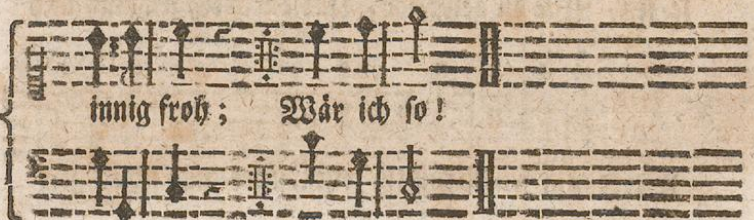 innig froh; Wär ich so!